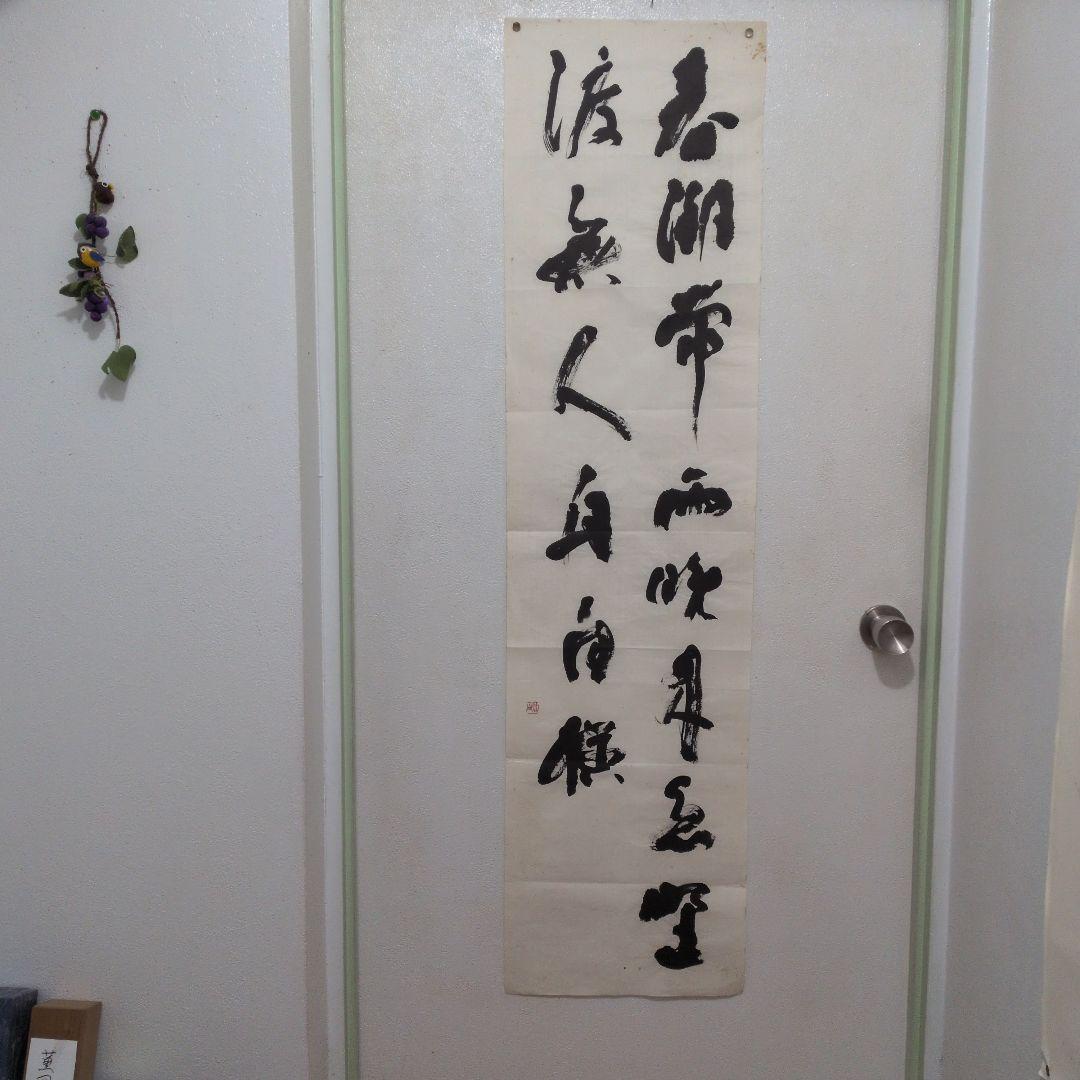 春潮帶雨晚来急野
渡無人舟自横